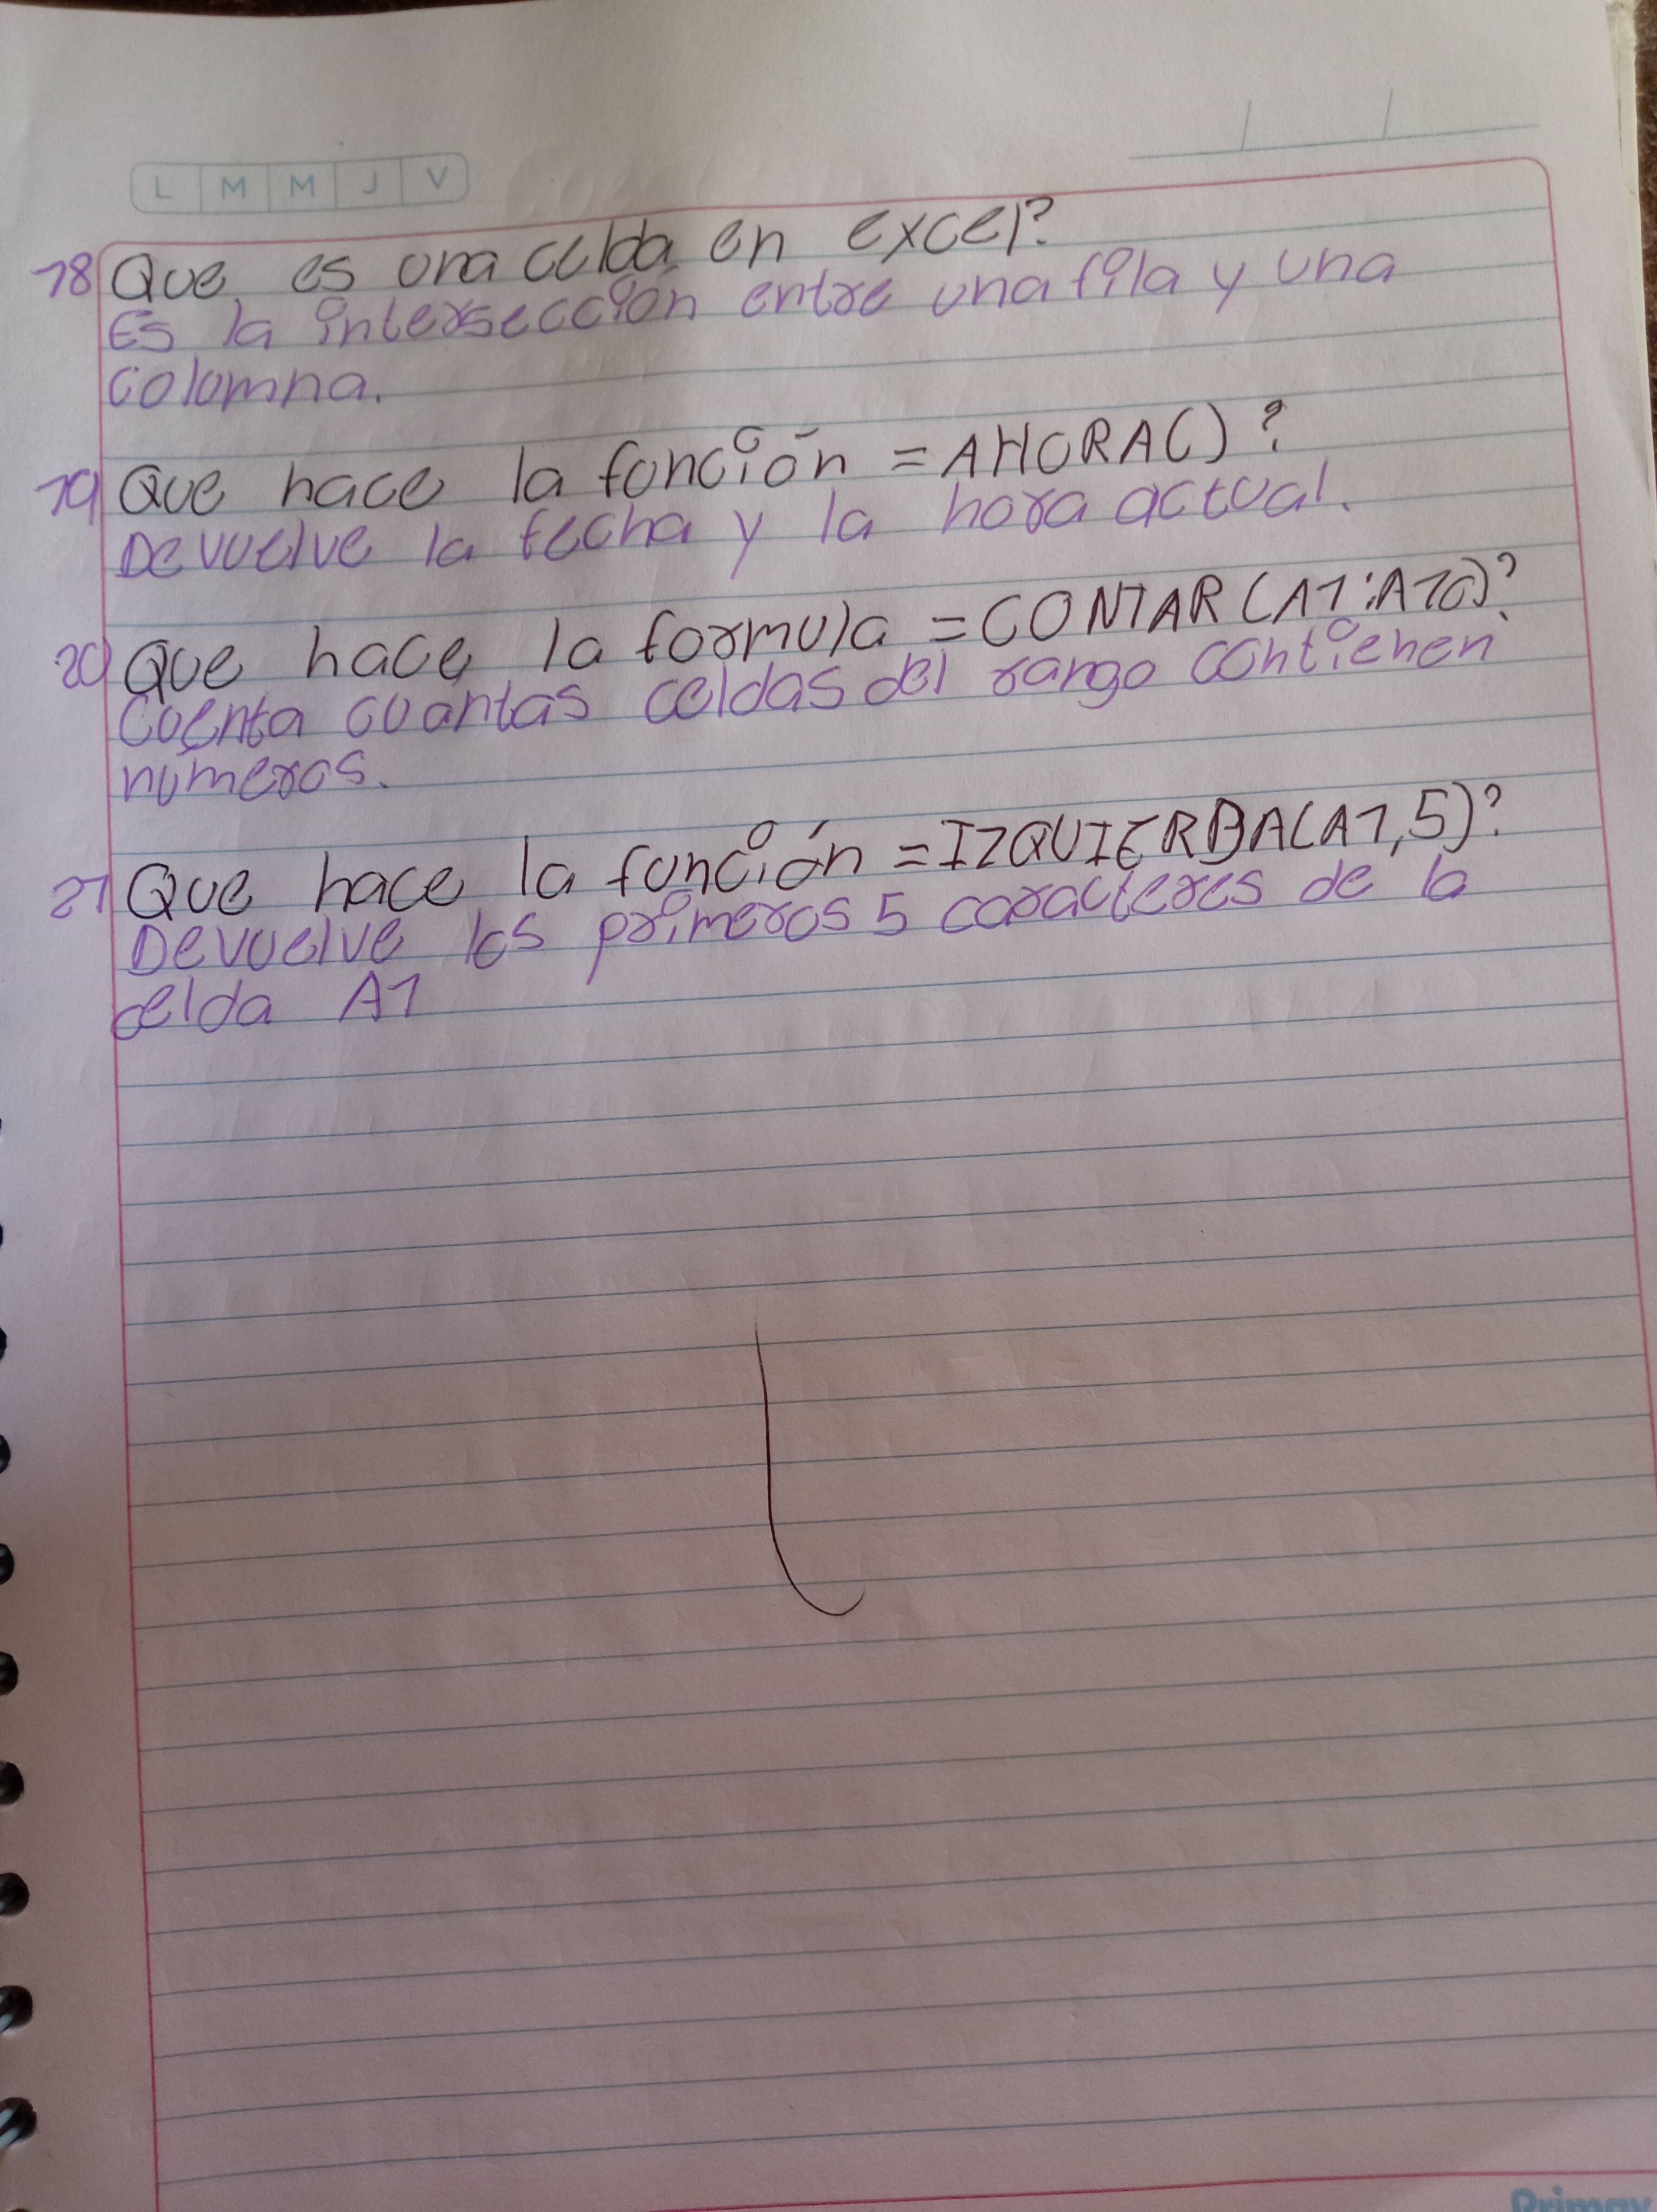 L M M J V
18 Que es una celda en excel?
Es la intersección entre una fila y una
columna.
19 Que hace la función = AHORA()?
Devuelve la fecha y la hora actual.
20 Que hace la formula = CONTAR(A1:A10)?
Cuenta cuantas celdas del rango contienen
números.
21 Que hace la función = IZQUIERDA(A1,5)?
Devuelve los primeros 5 caracteres de la
celda A1
Primax